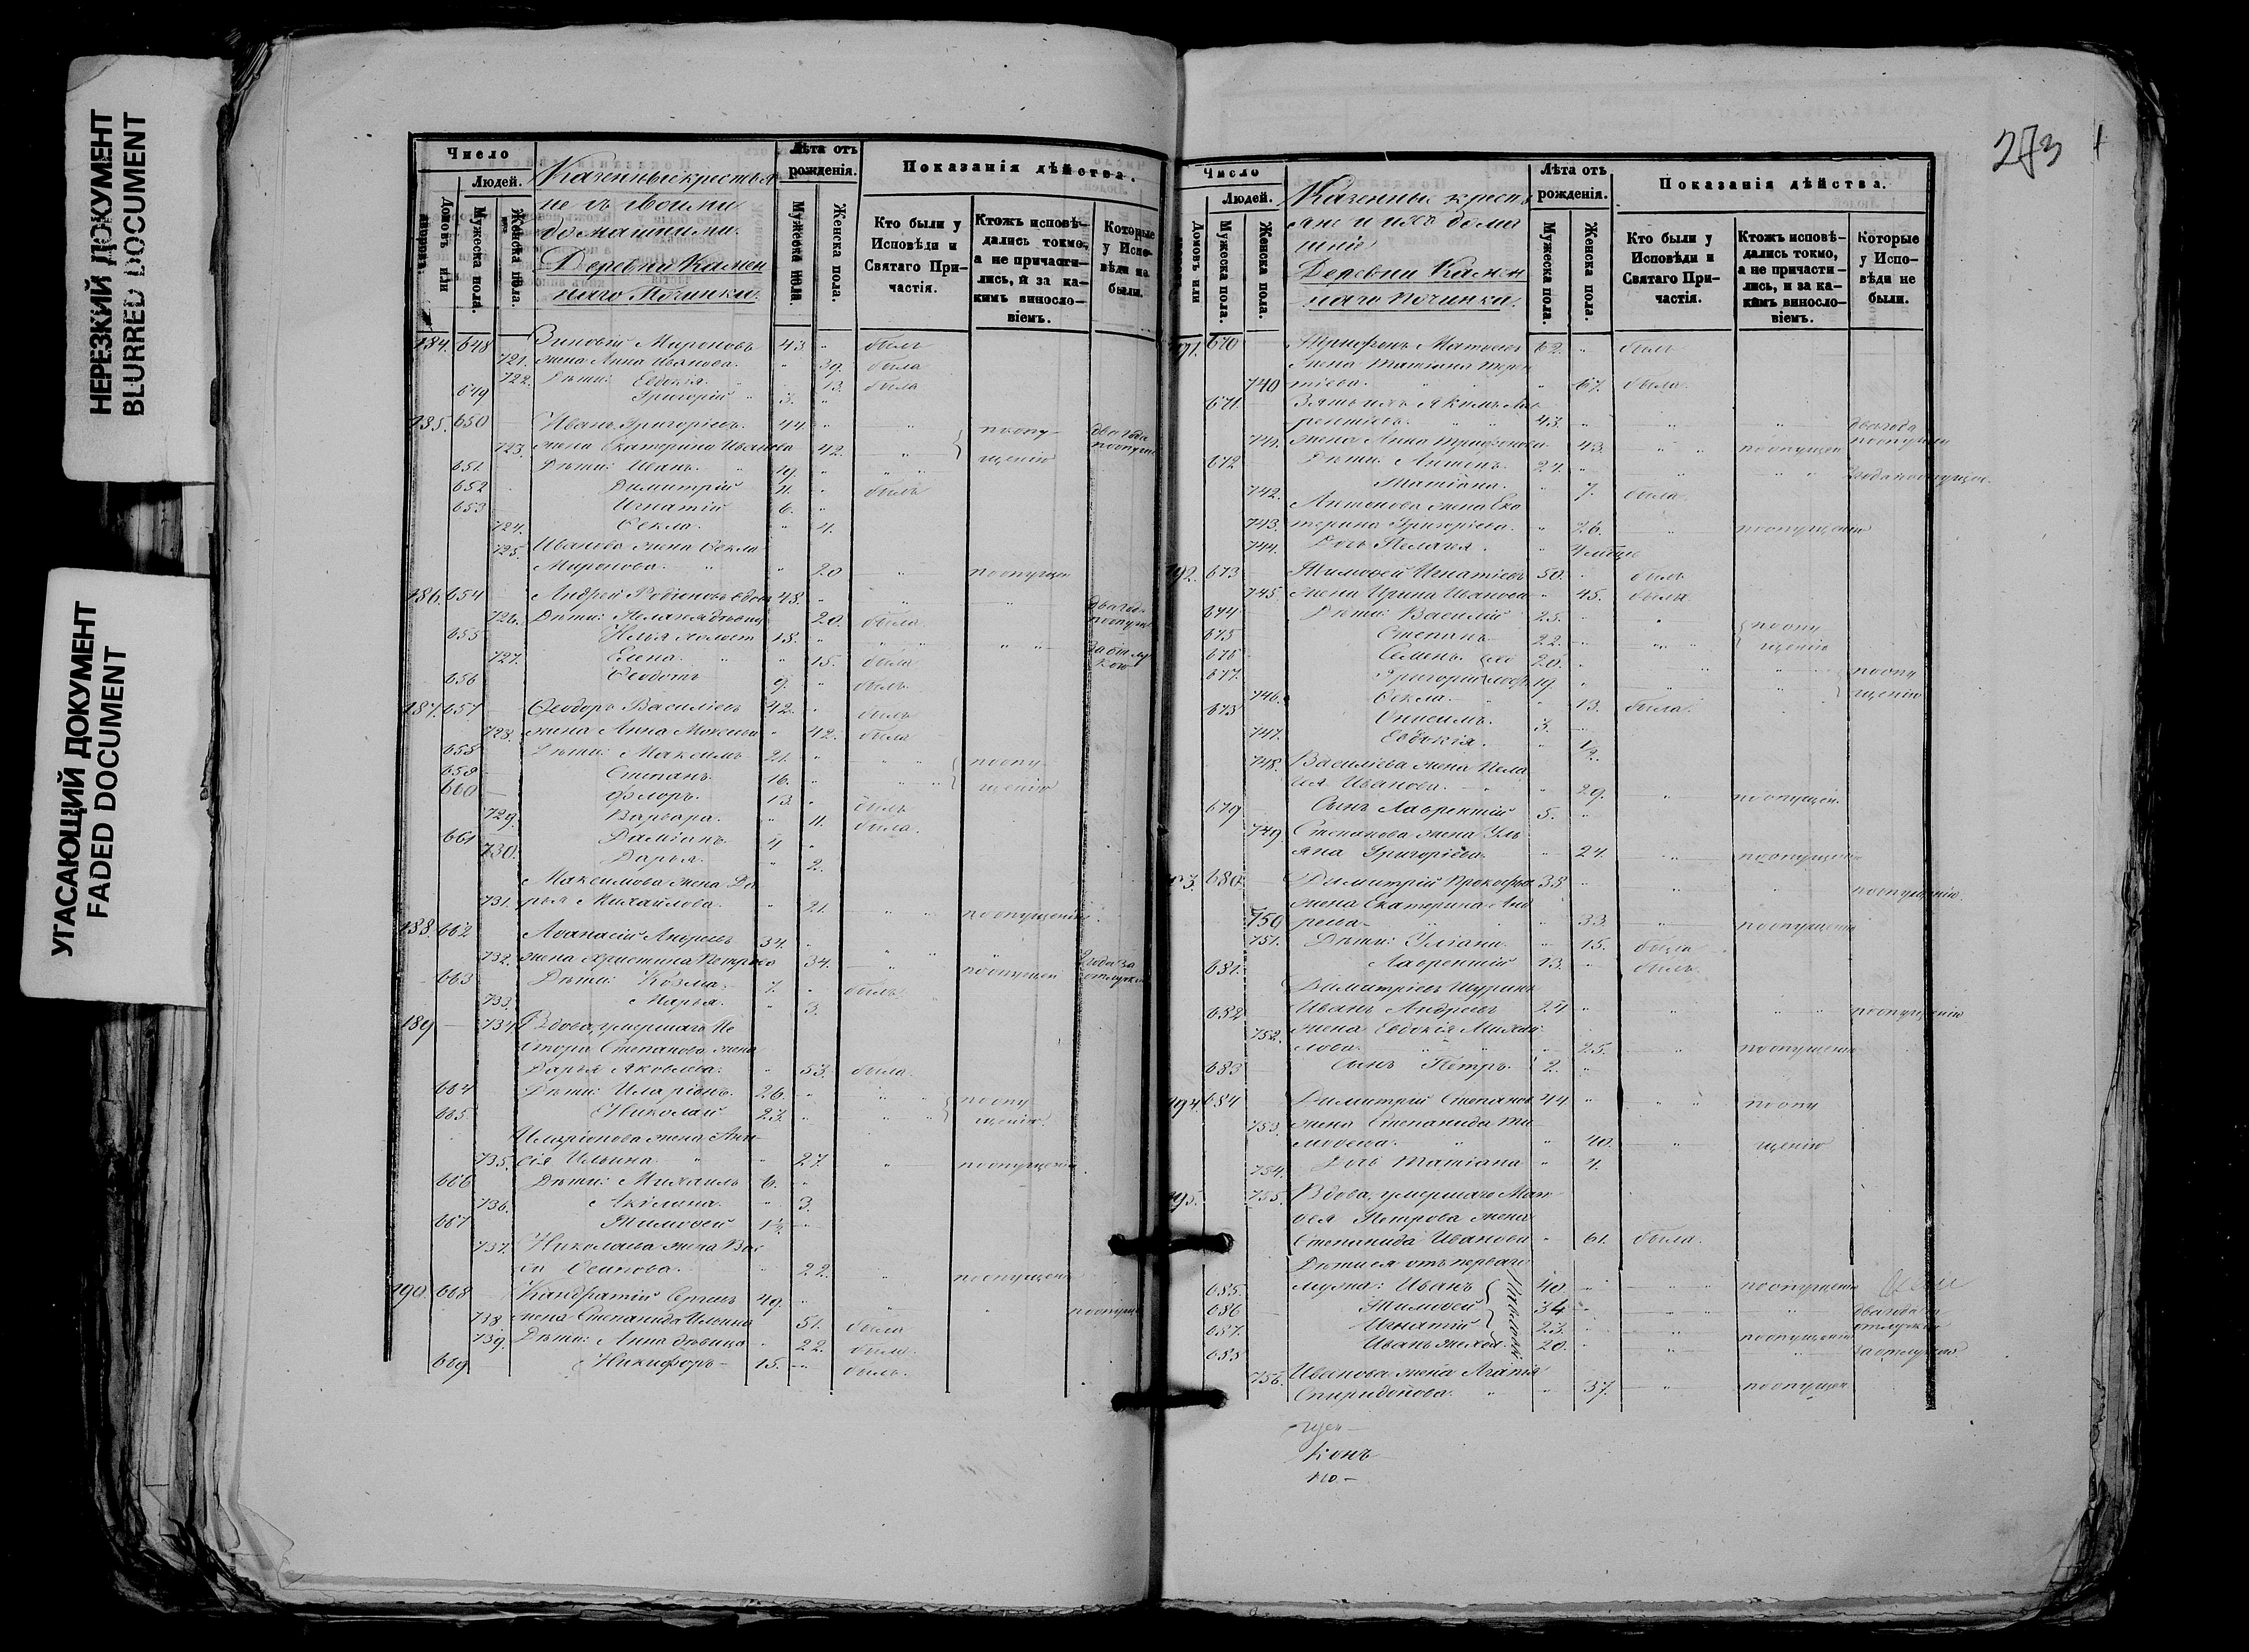 НЕРЕЗКИЙ ДОКУМЕНТ
BLURRED DOCUMENT
УГАСАЮЩИЙ ДОКУМЕНТ
FADED DOCUMENT
Число
Людей.
Домовъ или дворовъ.
Мужеска пола.
Женска пола.
Казенные крестья
не съ своими
домашними.
Деревни Камен
наго Починка.
Лѣта отъ рожденія.
Мужеска пола.
Женска пола.
Показанія дѣйства.
Кто были у Исповѣди и Святаго Причастія.
Ктожъ исповѣдались токмо, а не причастились, и за какимъ винословіемъ.
Которые у Исповѣди не были.
184. 648 Зиновій Мироновъ 43. " былъ
721. жена Анна Иванова. " 39. была
722. Дѣти: Евдокія. " 13. была
649 Григорій " 3. "
185. 650 Иванъ Григорьевъ. 44. " " поопу- два года
723. жена Екатерина Иванова 42. " щенію
651. Дѣти: Иванъ. " 19. " "
652 Димитрій 11. " былъ
653 Игнатій 6. "
724. Ѳекла. " 4.
725. Иванова жена Ѳекла
Миронова. " " 20 " поопущен
186. 654 Андрей Родіоновъ вдовъ 48. " " "
726. Дѣти: Пелагія дѣвица 20. была
655 Илья холост 18. " " "
727. Елена. " " 15. была
656 Ѳеодотъ 9. " былъ
187. 657 Ѳеодоръ Василіевъ 42. " былъ
728. жена Анна Моисеева " 42. была
658 Дѣти: Максимъ 21. " " поопу
659 Степанъ. 16. " " щенію
660 Флоръ. 13. " былъ
729. Варвара. " 11. была.
661 Даміанъ. 4 "
730. Дарья. " 2.
Максимова жена Да
731. рья Михайлова. " 21. " поопущенію
188. 662 Аѳанасій Андреевъ 34. " "
732. жена Христина Петрова 34. " поопущен
663 Дѣти: Козма. 7. " былъ
733. Марья. " 3.
189 734 Вдова, умершаго Не
стора Степанова жена
Дарья Яковлева. " 53. была.
664 Дѣти: Иларіонъ. 26. " " поопу
665 Николай 23. " " щенію.
Иларіонова жена Ани-
735. сія Ильина. " " 27. " поопущенію
666 Дѣти: Михаилъ 6. "
736. Акилина. " 3.
667 Тимоѳей 1½. "
737. Николаева жена Вас
са Осипова. " 22. " поопущенію
190. 668 Кандратій Сергеевъ 49. " " " поопущен
738 жена Степанида Ильина 51. была
739. Дѣти: Анна дѣвица " 22. была.
669 Никифоръ 15. " былъ.
273
Число
Людей.
Домовъ или
Мужеска пола.
Женска пола.
Казенные кресть
яне и ихъ дома
шніе
Деревни Камен
наго Починка.
Лѣта отъ рожденія.
Мужеска пола.
Женска пола.
Показанія дѣйства.
Кто были у Исповѣди и Святаго Причастія.
Ктожъ исповѣдались токмо, а не причастились, и за какимъ винословіемъ.
Которые у Исповѣди не были.
191. 670 Трифонъ Матвеевъ 62. " былъ
Жена Татіана Терен
740 тіева. " " 67. была.
671. Зять ихъ Акимъ Лав
рентіевъ. " " 43. " " " два года
741. жена Анна Трифонова 43. " поопущен поопущен
672 Дѣти: Антонъ. 24. " "
742. Татіана. " 7. была
Антонова жена Ека
743. терина Григоріева. " 26. " поопущенію
744. Дочь Пелагея. " 4 мѣсяц
192. 673 Тимоѳей Игнатіевъ 50. " былъ
745. жена Ирина Иванова " 45. была
674 Дѣти: Василій 25. " " поопу
675 Степанъ 22. " " щенію
676 Семенъ. 20. " " " поопу
677. Григорій 19 " " щенію
746. Ѳекла. " 13. была.
678 Онисимъ. 3. "
747. Евдокія. " ½.
748. Василіева жена Пела
гея Иванова. " 29. " поопущен.
679 Сынъ Лаврентій 5. "
749. Степанова жена Уль
яна Григоріева. " 24. " поопущен
193. 680. Димитрій Прокофьев 35 " " " поопущенію.
жена Екатерина Анд
750 реева. " " 33. " поопущенію
751. Дѣти: Уліани. " 15. была
681. Лаврентій 13. " былъ.
Димитріевъ Шуринъ
682 Иванъ Андреевъ 27 " " " поопущенію
752. жена Евдокія Михаи-
лова. " " 25. " поопущенію
683 Сынъ Петръ. 2. "
194. 684 Димитрій Степанов 44. " " поопу
753. жена Степанида Ти-
моѳеева. " " 40. " щенію
754. Дочь Татіана " 4.
195. 755. Вдова, умершаго Мат-
вея Петрова жена
Степанида Иванова " 61. была.
Дѣти ея отъ перваго
685. мужа: Иванъ 40 " " поопущенію
686 Тимоѳей 34 " " " два года
687. Игнатій 23. " " поопущенію
688 Иванъ 20. " " "
756. Иванова жена Агапія
Спиридонова. " " 37. " поопущен